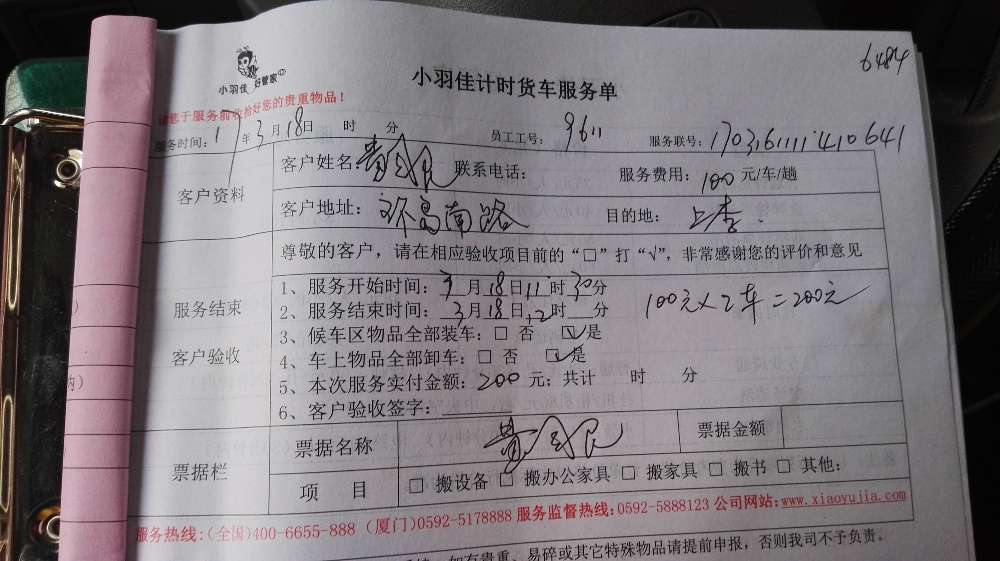 6484
小羽佳 好管家
小羽佳计时货车服务单
请您于服务前收拾好您的贵重物品！
服务时间：17年3月18日 时 分 员工工号：9611 服务联号：
客户资料
客户姓名： 联系电话： 服务费用：100元/车/趟
客户地址：环岛南路 目的地：上李
尊敬的客户，请在相应验收项目前的“□”打“√”，非常感谢您的评价和意见
服务结束
客户验收
1、服务开始时间：3月18日11时30分
2、服务结束时间：3月18日12时 分
100元×2车=200元
3、候车区物品全部装车：□ 否 ☑是
4、车上物品全部卸车：□ 否 ☑是
5、本次服务实付金额：200 元；共计 时 分
6、客户验收签字：
票据栏
票据名称 票据金额
项 目 □ 搬设备 □ 搬办公家具 □ 搬家具 □ 搬书 □ 其他：
服务热线:(全国)400-6655-888 (厦门)0592-5178888 服务监督热线:0592-5888123 公司网站:www.xiaoyujia.com
如有贵重、易碎或其它特殊物品请提前申报，否则我司不予负责。